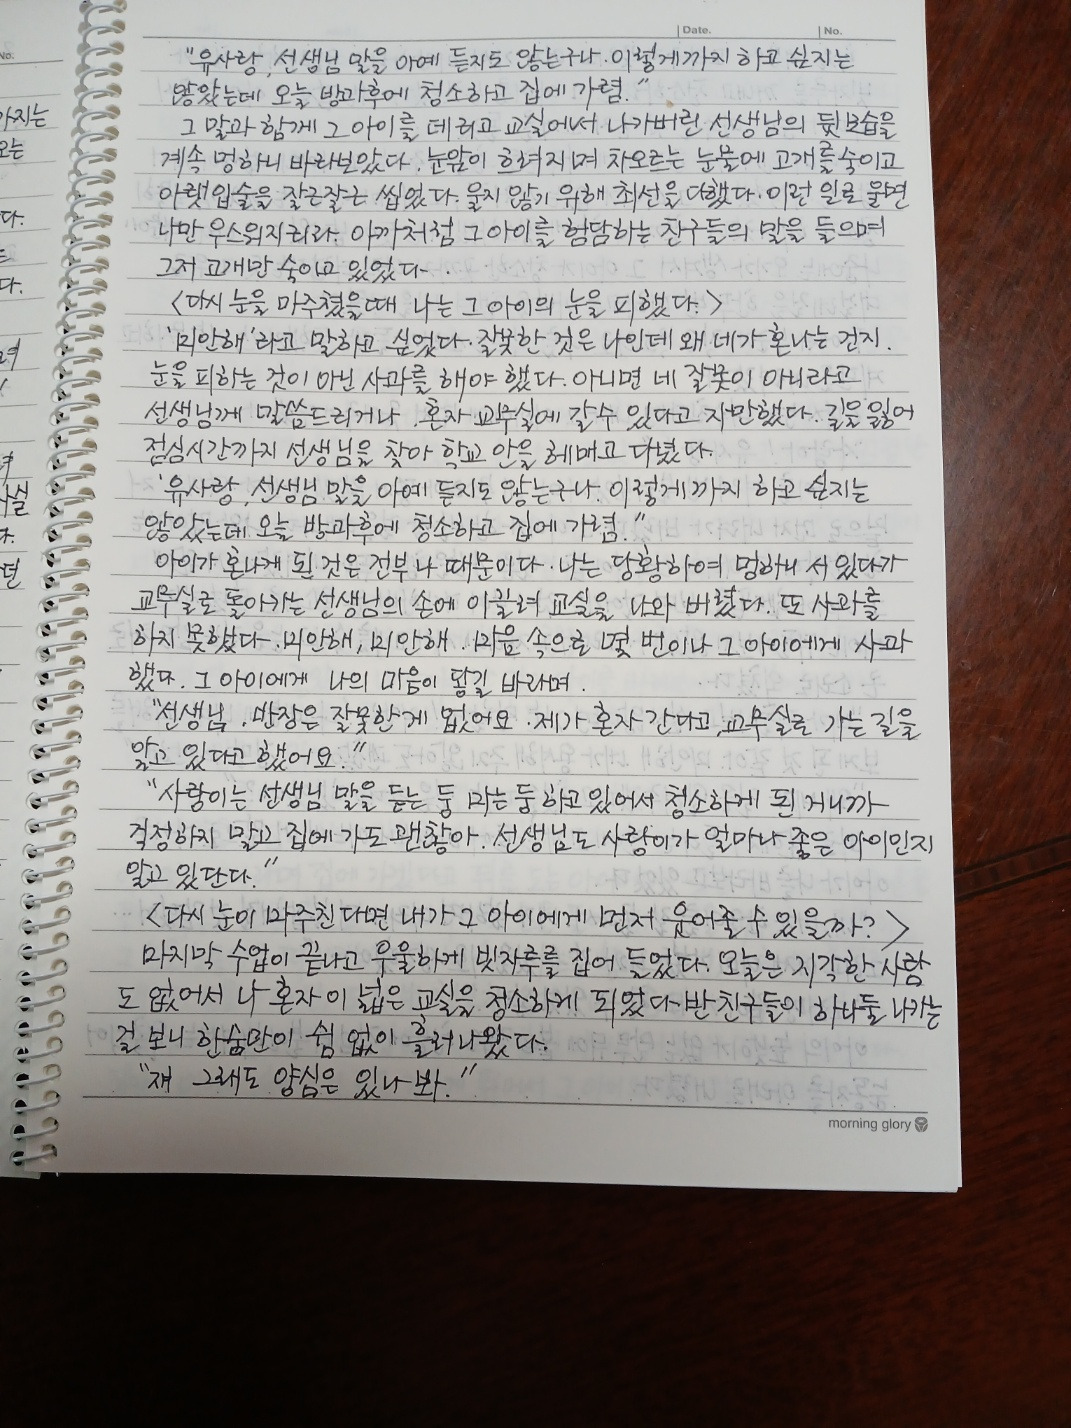 Date.
No.
"유사랑, 선생님 말을 아예 듣지도 않는구나. 이렇게까지 하고 싶지는
않았는데 오늘 방과후에 청소하고 집에 가렴."
그 말과 함께 그 아이를 데리고 교실에서 나가버린 선생님의 뒷모습을
계속 멍하니 바라보았다. 눈앞이 흐려지며 차오르는 눈물에 고개를 숙이고
아랫입술을 잘근잘근 씹었다. 울지 않기 위해 최선을 다했다. 이런 일로 울면
나만 우스워지리라. 아까처럼 그 아이를 험담하는 친구들의 말을 들으며
그저 고개만 숙이고 있었다.
<다시 눈을 마주쳤을 때 나는 그 아이의 눈을 피했다.>
'미안해'라고 말하고 싶었다. 잘못한 것은 나인데 왜 네가 혼나는 건지.
눈을 피하는 것이 아닌 사과를 해야 했다. 아니면 네 잘못이 아니라고
선생님께 말씀드리거나. 혼자 교무실에 갈수 있다고 자만했다. 길을 잃어
점심시간까지 선생님을 찾아 학교 안을 헤매고 다녔다.
'유사랑, 선생님 말을 아예 듣지도 않는구나. 이렇게까지 하고 싶지는
않았는데 오늘 방과후에 청소하고 집에 가렴."
아이가 혼나게 된 것은 전부 나 때문이다. 나는 당황하여 멍하니 서 있다가
교무실로 돌아가는 선생님의 손에 이끌려 교실을 나와 버렸다. 또 사과를
하지 못했다. 미안해, 미안해. 마음 속으로 몇 번이나 그 아이에게 사과
했다. 그 아이에게 나의 마음이 닿길 바라며.
"선생님, 반장은 잘못한 게 없어요. 제가 혼자 간다고, 교무실로 가는 길을
알고 있다고 했어요."
"사랑이는 선생님 말을 듣는 둥 마는 둥 하고 있어서 청소하게 된 거니까
걱정하지 말고 집에 가도 괜찮아. 선생님도 사랑이가 얼마나 좋은 아이인지
알고 있단다."
<다시 눈이 마주친다면 내가 그 아이에게 먼저 웃어줄 수 있을까?>
마지막 수업이 끝나고 우울하게 빗자루를 집어 들었다. 오늘은 지각한 사람
도 없어서 나 혼자 이 넓은 교실을 청소하게 되었다. 반 친구들이 하나둘 나가는
걸 보니 한숨만이 쉼 없이 흘러나왔다.
"쟤 그래도 양심은 있나 봐."
morning glory